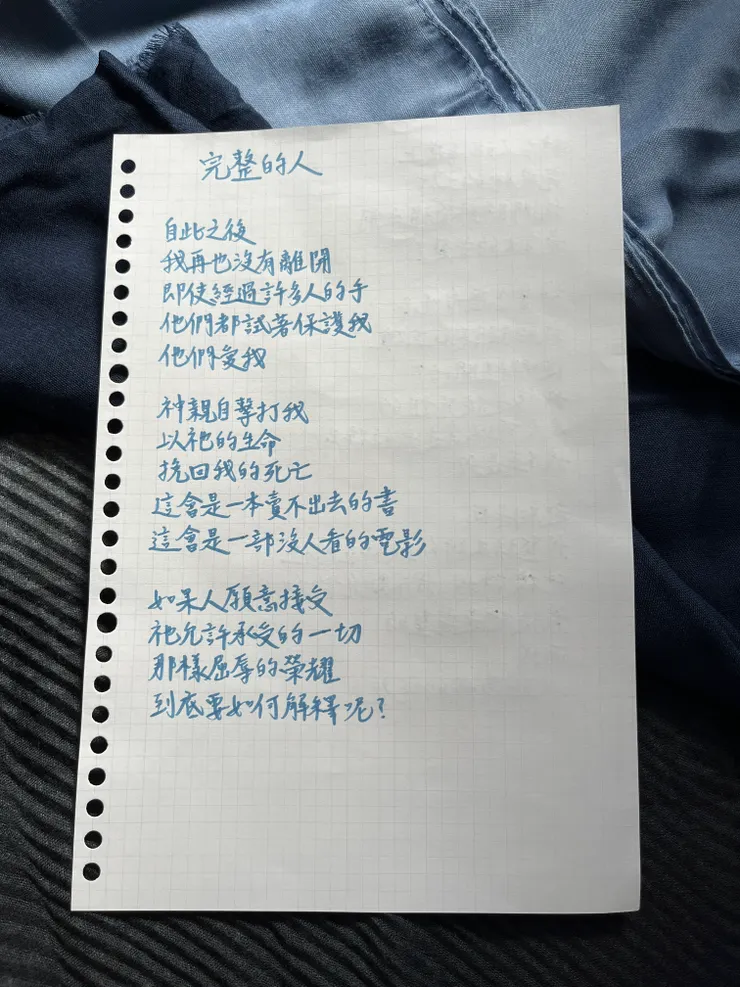 完整的人
自此之後
我再也沒有離開
即使經過許多人的手
他們都試著保護我
他們愛我
神親自擊打我
以祂的生命
挽回我的死亡
這會是一本賣不出去的書
這會是一部沒人看的電影
如果人願意接受
祂允許承受的一切
那樣屈辱的榮耀
到底要如何解釋呢？